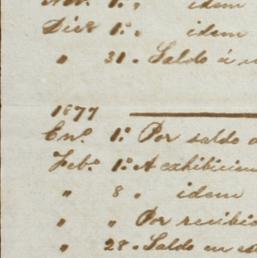 Nov. 1º. „ idem
Dicê 1º. „ idem
„ 31. Saldo á
1877
Enº. 1º. Por saldo
Febº. 1º. A exhibicion
„ 8. idem
„ „ Por recibi
„ 28. Saldo en